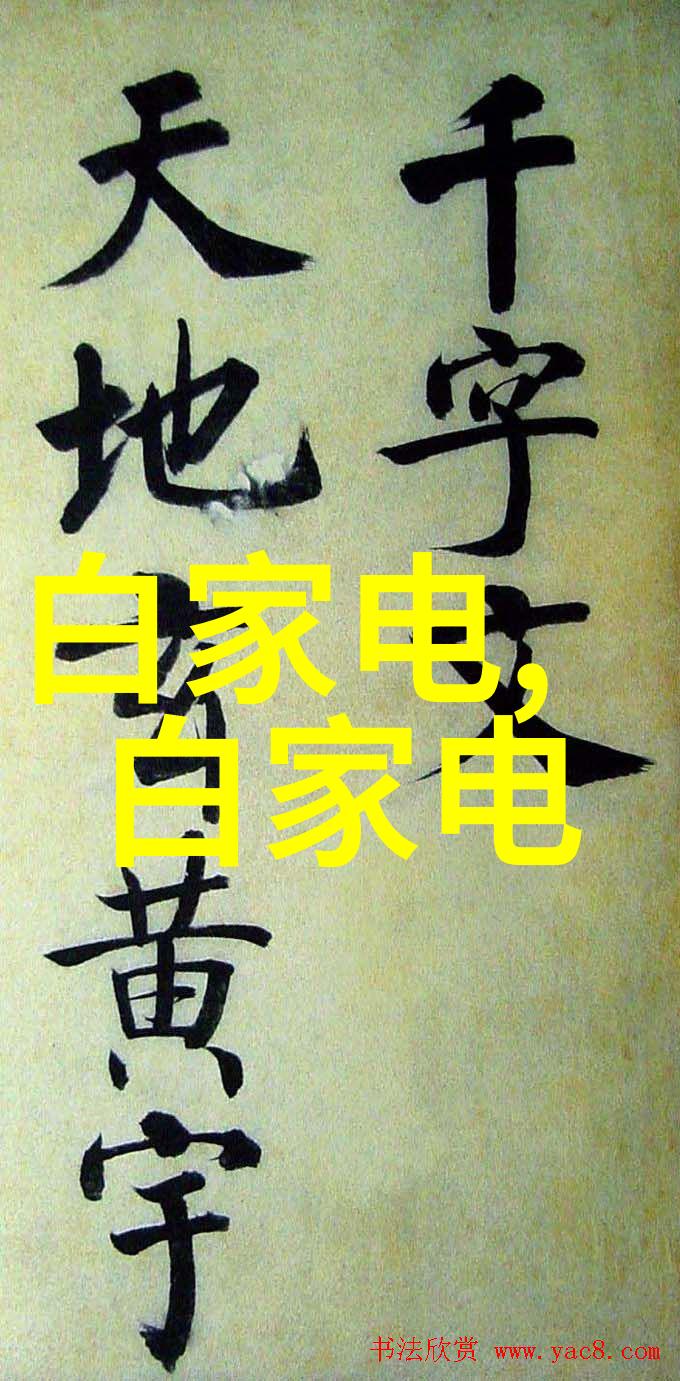 千字文
天地玄黄宇
白家电,
白家电
书法欣赏 www.yac8.com